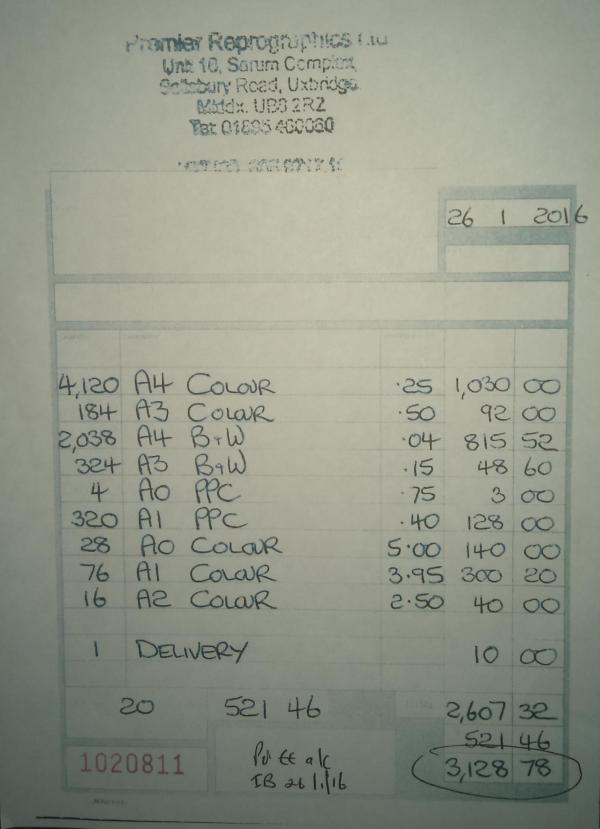 Premier Reprographics Ltd
Unit 10, Sarum Complex,
Salisbury Road, Uxbridge,
Middx. UB8 2RZ
Tel: 01895
26 1 2016
4,120 A4 COLOUR .25 1,030 00
184 A3 COLOUR .50 92 00
2,038 A4 B+W .04 815 52
324 A3 B+W .15 48 60
4 A0 PPC .75 3 00
320 A1 PPC .40 128 00
28 A0 COLOUR 5.00 140 00
76 A1 COLOUR 3.95 300 20
16 A2 COLOUR 2.50 40 00
1 DELIVERY 10 00
20 521 46 2,607 32
521 46
1020811 3,128 78
Pd a/c
IB 26/1/16